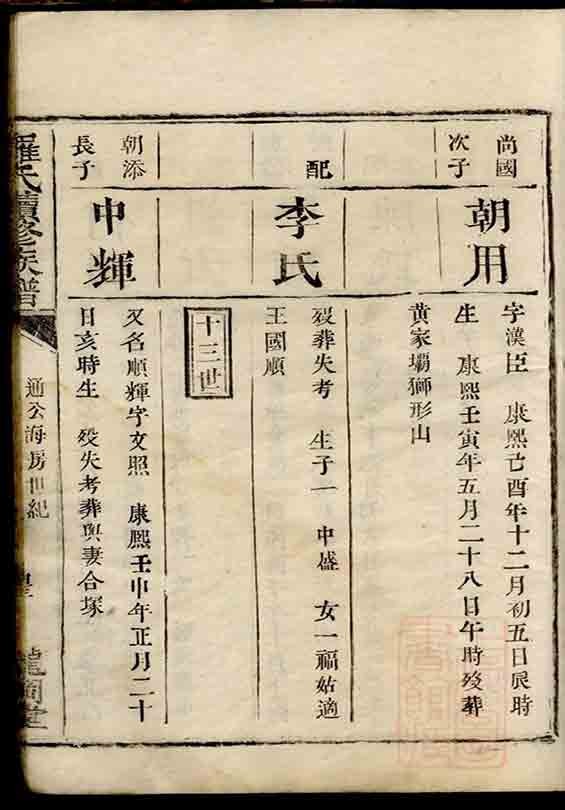 尚國
次子
朝用
字漢臣 康熙己酉年十二月初五日辰時
生 康熙壬寅年五月二十八日午時歿葬
黃家壩獅形山
配
李氏
歿葬失考 生子一 中盛 女一福姑適
王國順
十三世
朝添
長子
中輝
又名順輝字文照 康熙壬申年正月二十
日亥時生 歿失考葬與妻合塚
羅氏續修族譜
通公海房世紀